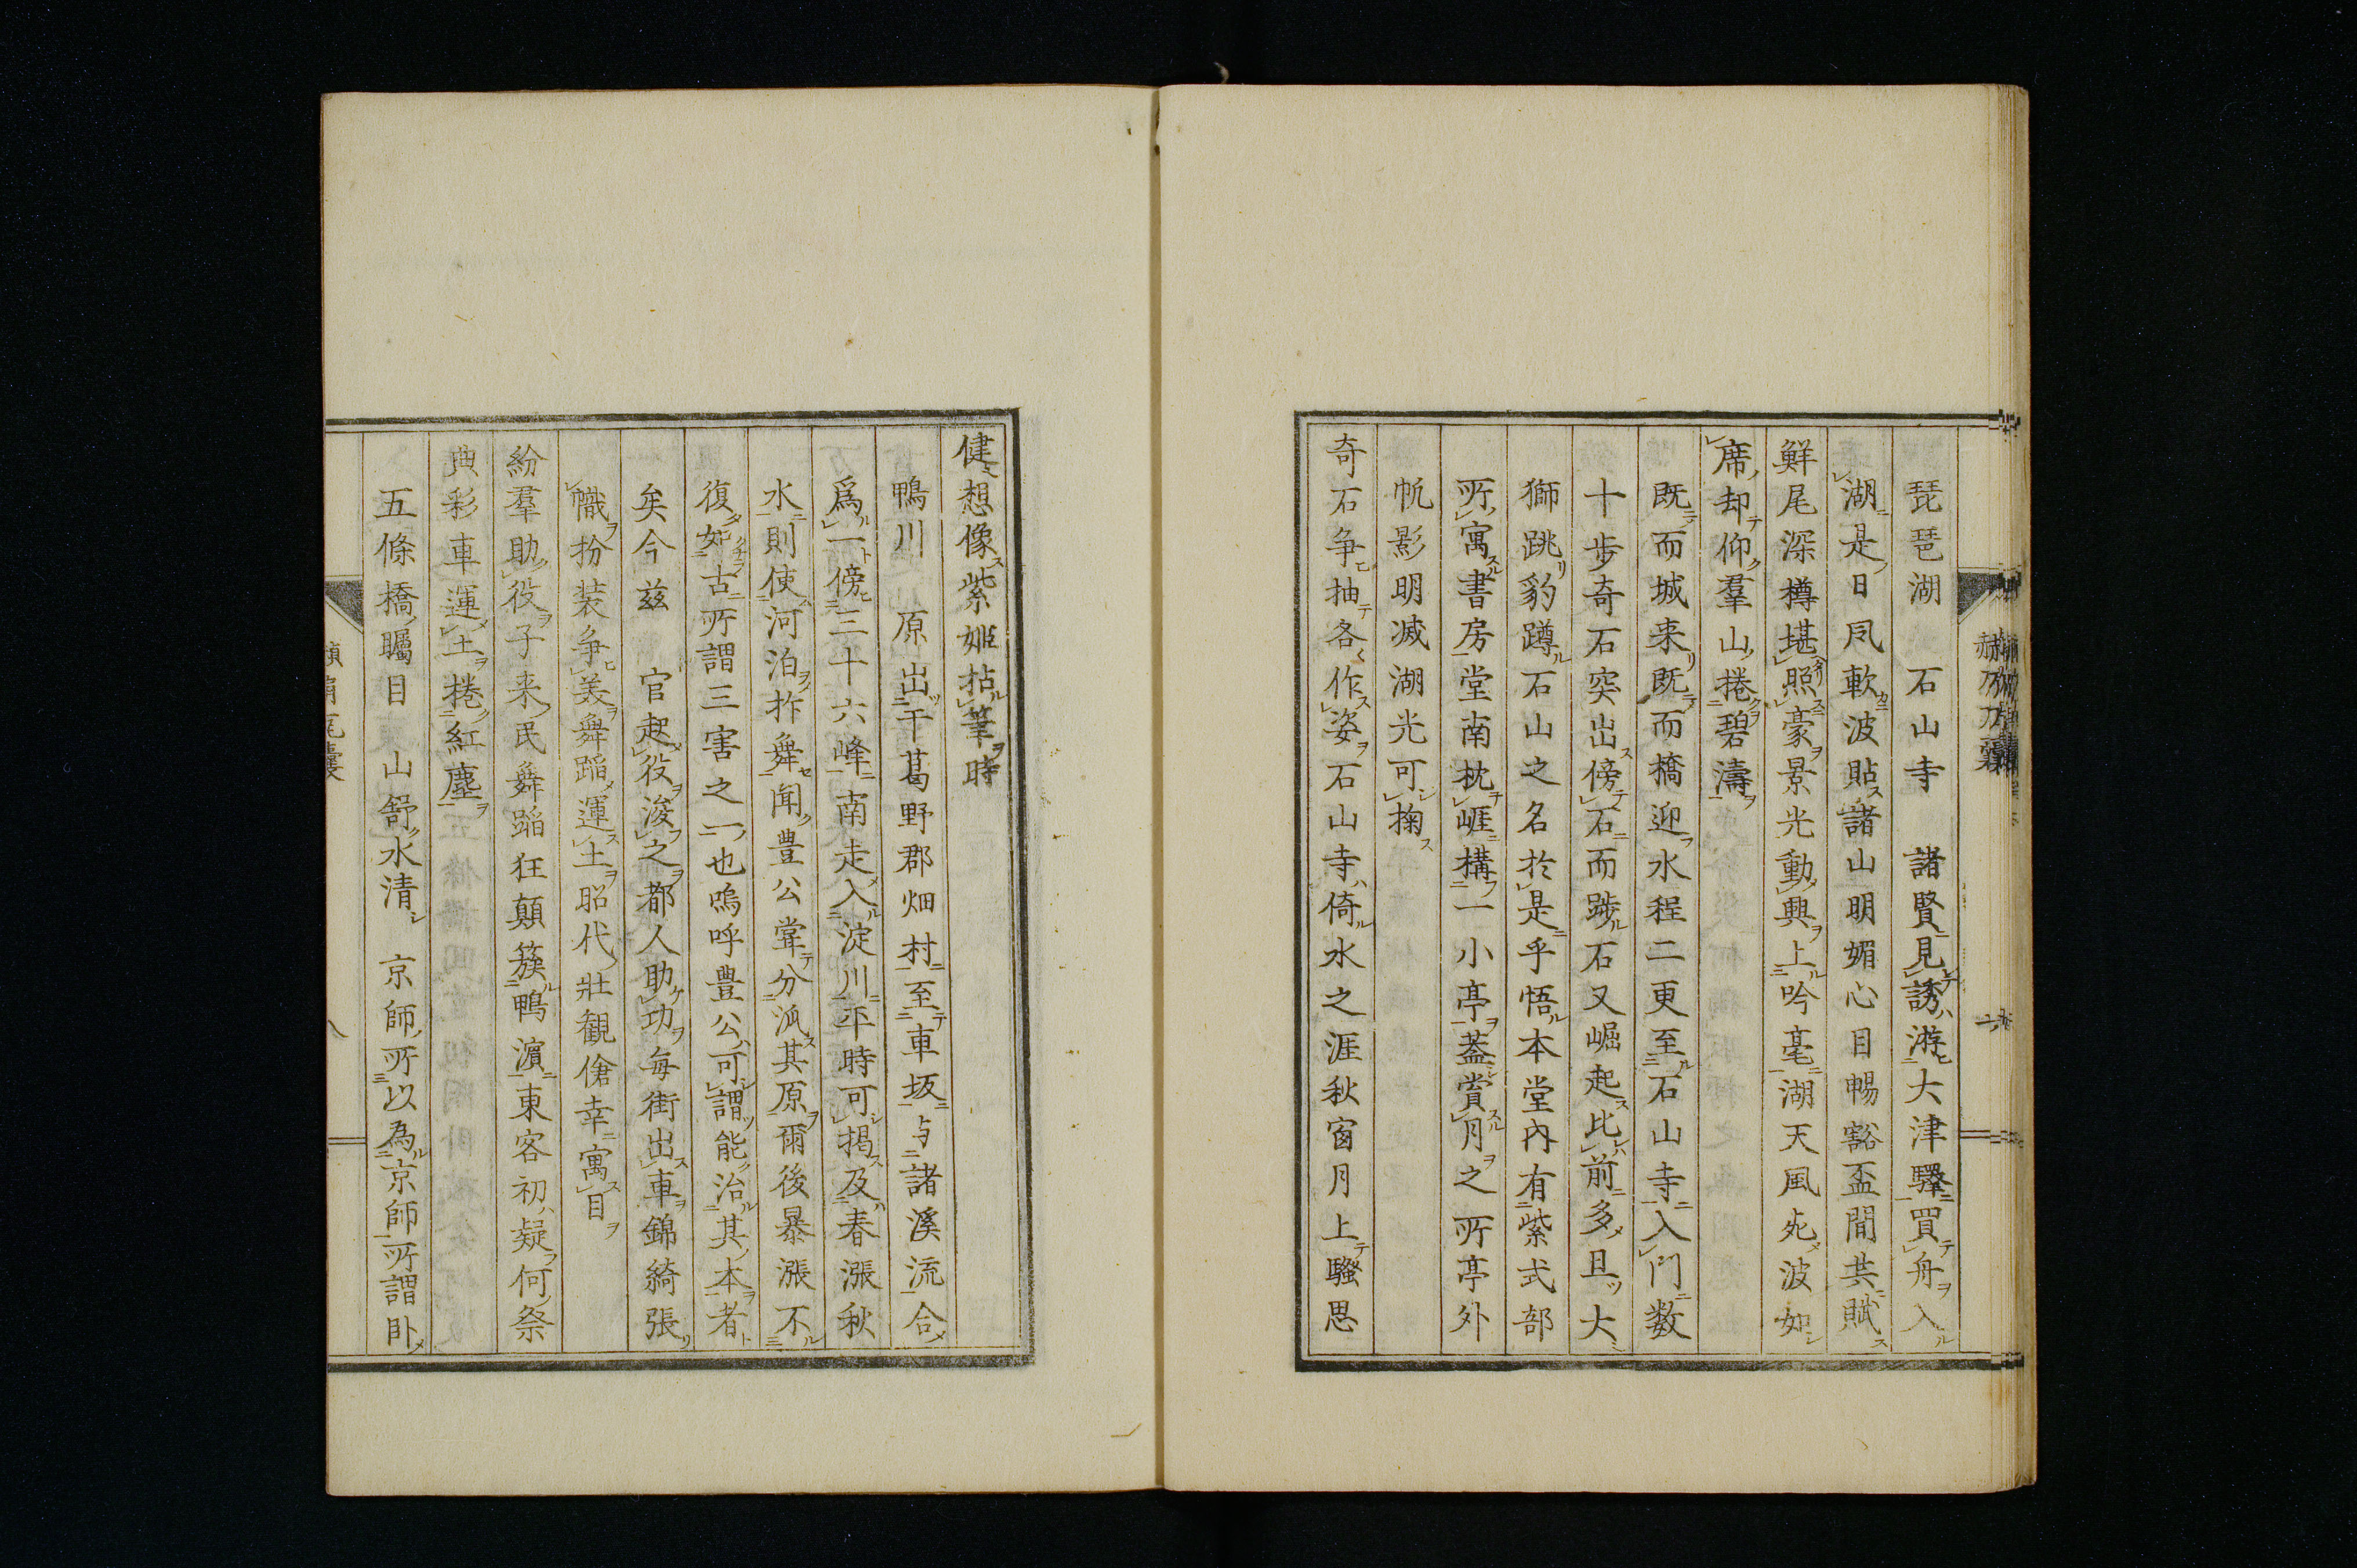 琵琶湖　石山寺　諸賢見誘游大津驛買舟入
湖是日凨軟波貼諸山明媚心目暢豁盃間共賦
鮮尾深樽堪照豪景光動興上吟毫湖天風死波如
席却仰羣山捲碧濤
既而城来既而橋迎水程二更至石山寺入門数
十步奇石突出傍石而踄石又崛起比前多且大
獅跳豹蹲石山之名於是乎悟本堂內有紫式部
所寓書房堂南枕崕構一小亭蓋賞月之所亭外
帆影明滅湖光可掬
奇石争抽各作姿石山寺倚水之涯秋窗月上騷思
健想像紫姬拈筆時
鴨川　原出干葛野郡畑村至車坂与諸溪流合
爲一傍三十六峰南走入淀川平時可揭及春漲秋
水則使河泊拃舞聞豊公甞分派其原爾後暴漲不
復如古所謂三害之一也嗚呼豊公可謂能治其本者
矣今兹　官起役浚之都人助功每街出車錦綺張
幟扮装争美舞蹈運土昭代壯観傖幸寓目
紛羣助役子来民舞蹈狂顛簇鴨濵東客初疑何祭
典彩車運土捲紅塵
五條橋矚目　山舒水清　京師所以為京師所謂卧